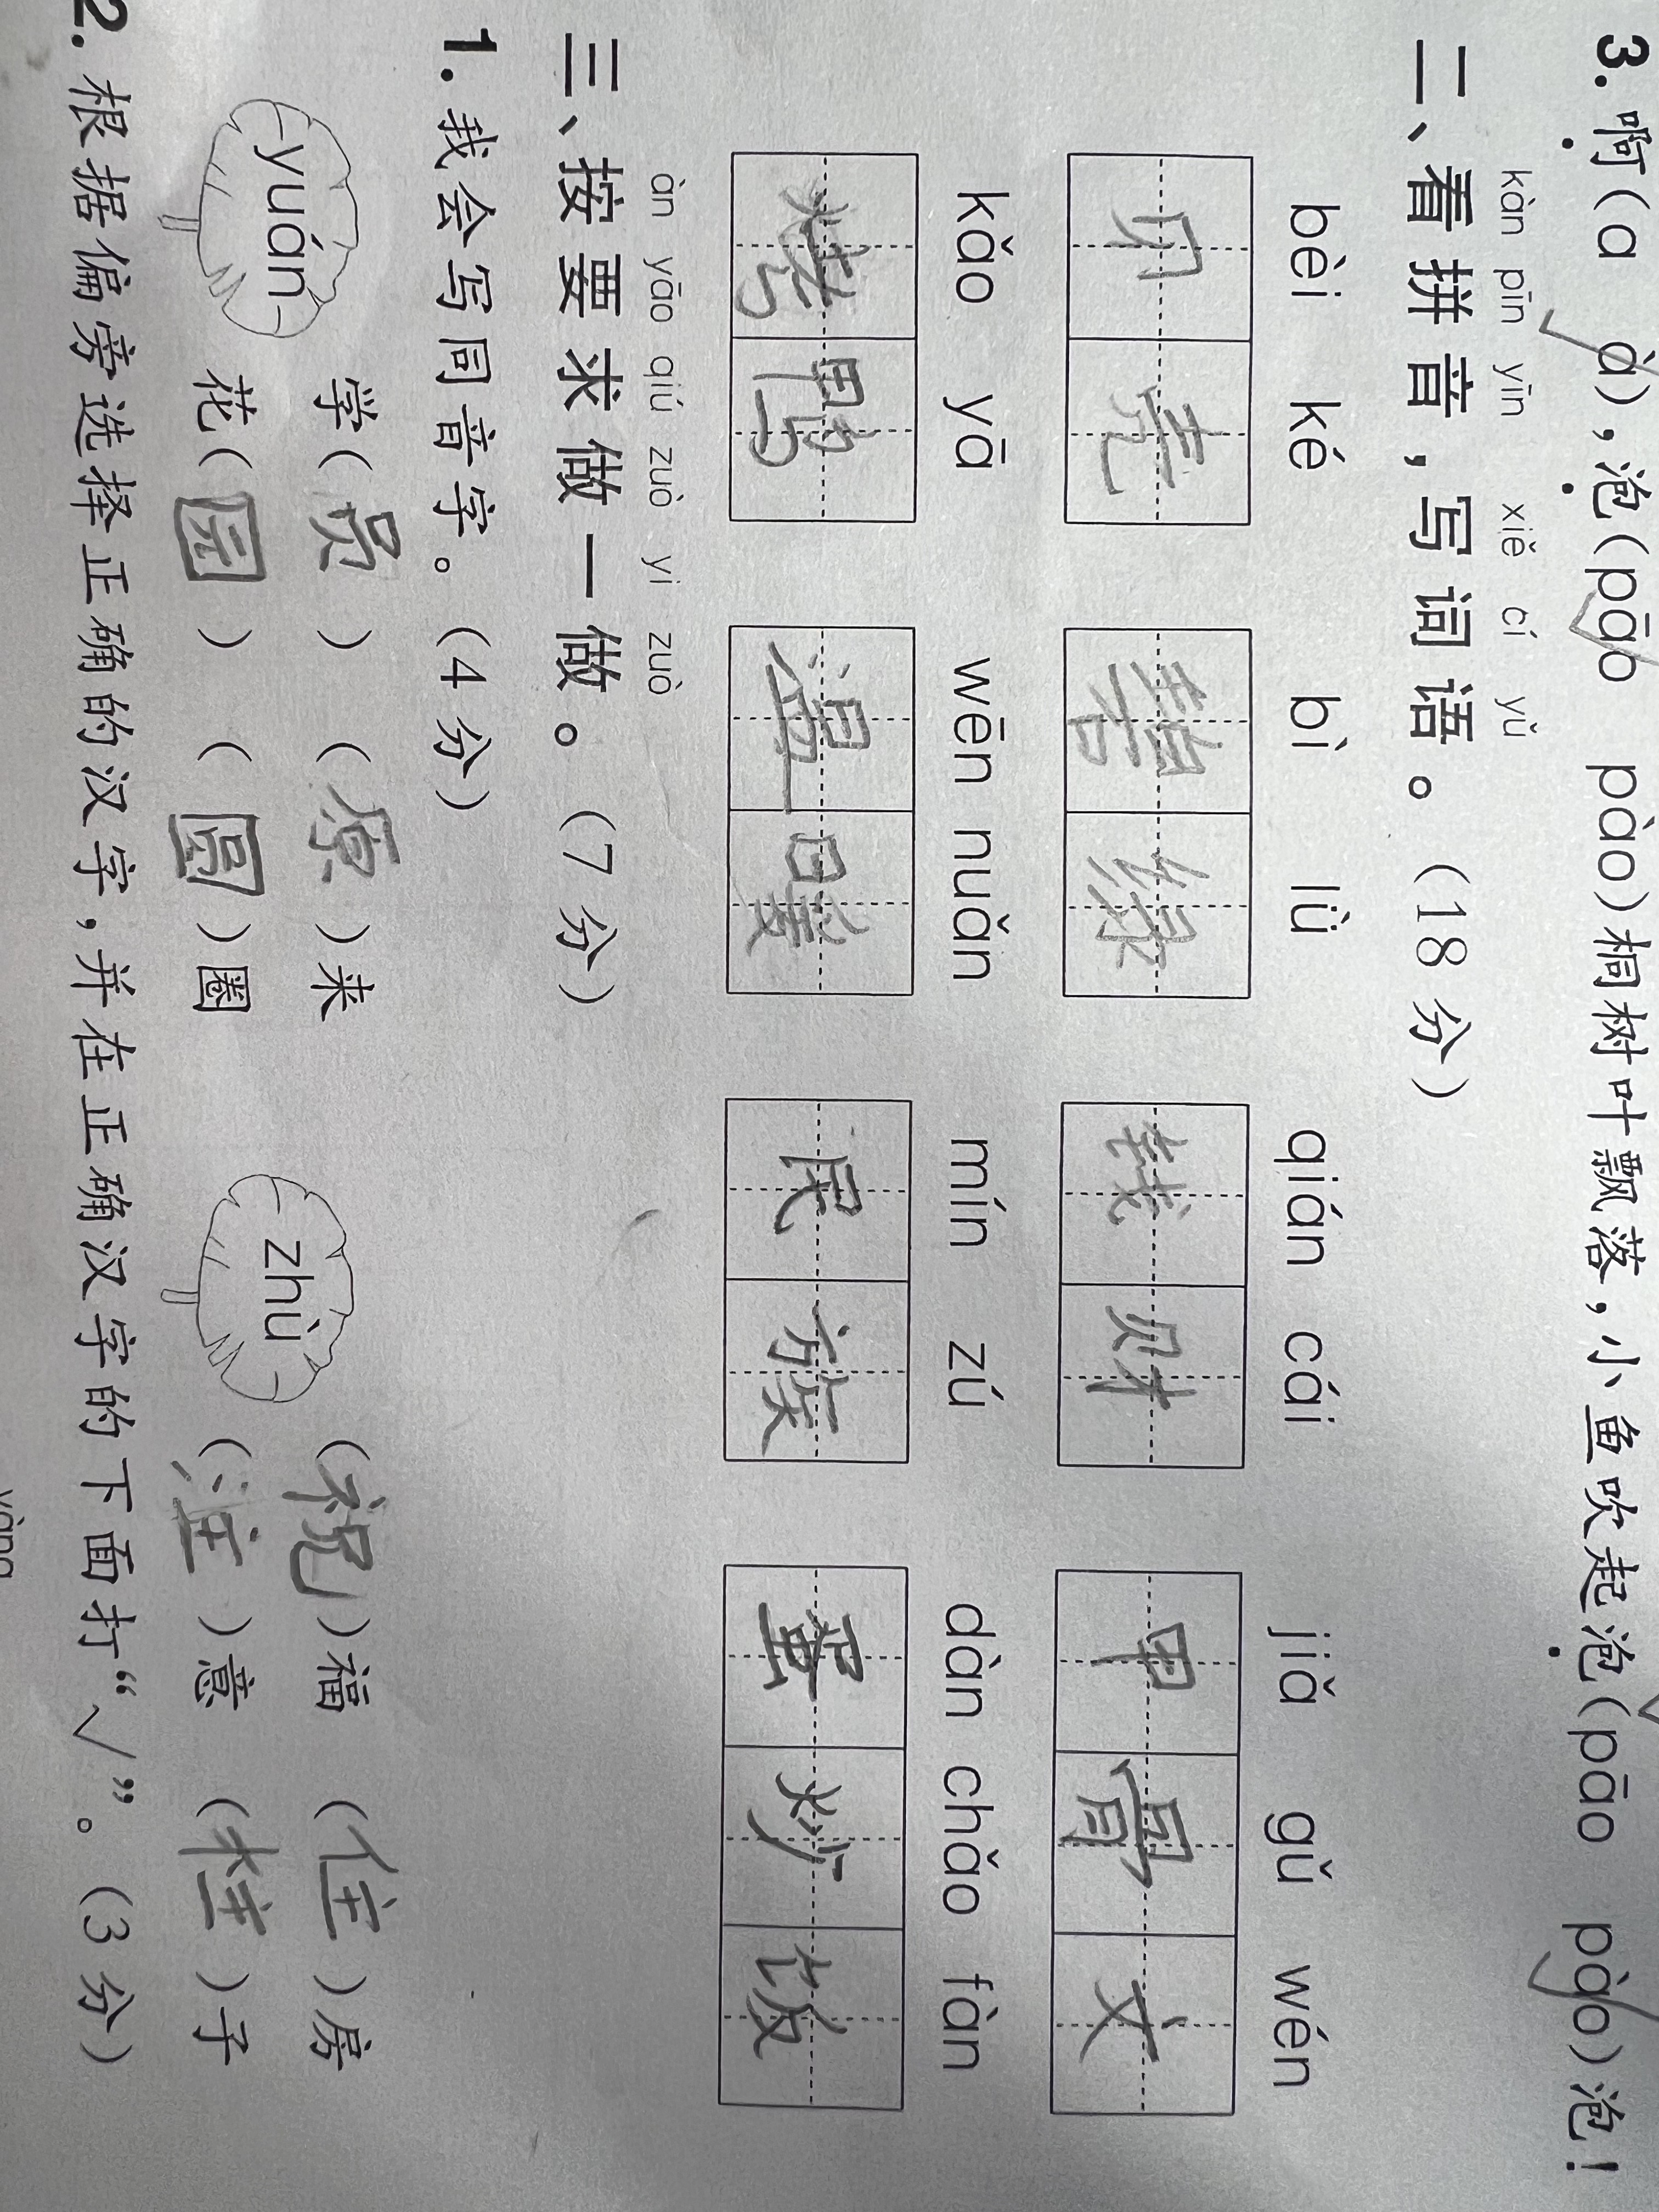 3. 啊(a à),泡(pāo pào)桐树叶飘落,小鱼吹起泡(pāo pào)泡!
kàn pīn yīn xiě cí yǔ
二、看拼音,写词语。(18分)
bèi ké bì lǜ qián cái jiǎ gǔ wén
贝 壳 碧 绿 钱 财 甲 骨 文
kǎo yā wēn nuǎn mín zú dàn chǎo fàn
烤 鸭 温 暖 民 族 蛋 炒 饭
àn yāo qiú zuò yi zuò
三、按要求做一做。(7分)
1. 我会写同音字。(4分)
yuán 学(员) (原)来 zhù (祝)福 (住)房
花(园) (圆)圈 (注)意 (柱)子
2. 根据偏旁选择正确的汉字,并在正确汉字的下面打“√”。(3分)
yàng